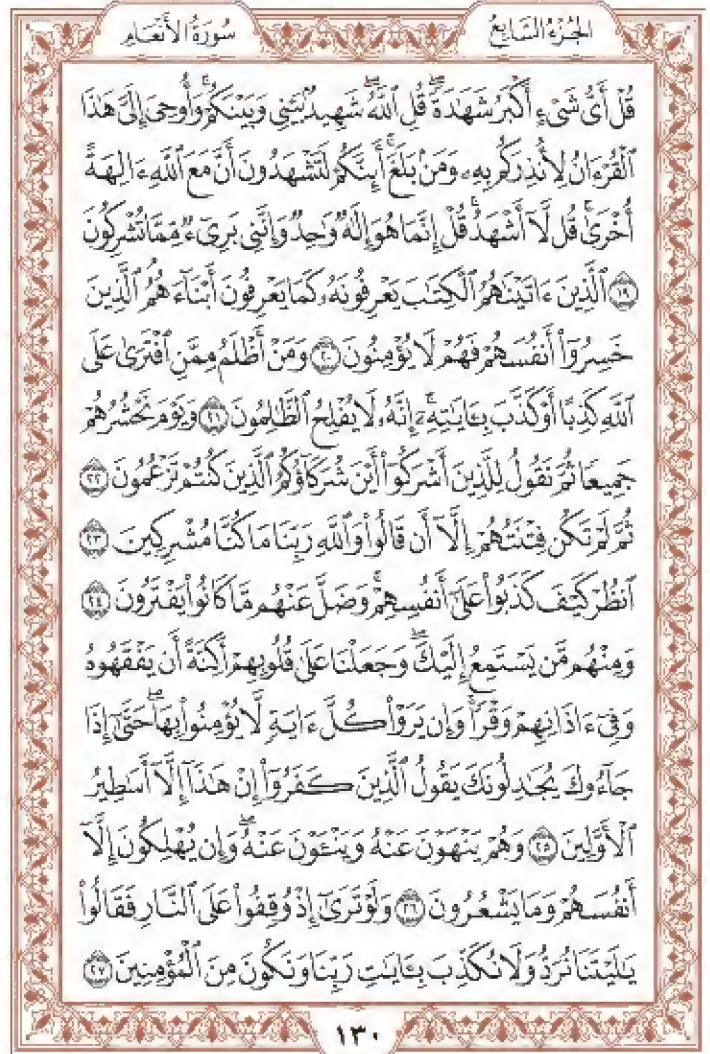 الجُزْءُ السَّابِعُ
سُورَةُ الأَنْعَامِ
قُلْ أَيُّ شَيْءٍ أَكْبَرُ شَهَٰدَةًۖ قُلِ ٱللَّهُۖ شَهِيدُۢ بَيْنِي وَبَيْنَكُمْۚ وَأُوحِيَ إِلَيَّ هَٰذَا
ٱلْقُرْءَانُ لِأُنذِرَكُم بِهِۦ وَمَنۢ بَلَغَۚ أَئِنَّكُمْ لَتَشْهَدُونَ أَنَّ مَعَ ٱللَّهِ ءَالِهَةً
أُخْرَىٰۚ قُل لَّآ أَشْهَدُۚ قُلْ إِنَّمَا هُوَ إِلَٰهٌ وَٰحِدٌ وَإِنَّنِي بَرِيٓءٌ مِّمَّا تُشْرِكُونَ
١٩ ٱلَّذِينَ ءَاتَيْنَٰهُمُ ٱلْكِتَٰبَ يَعْرِفُونَهُۥ كَمَا يَعْرِفُونَ أَبْنَآءَهُمُۘ ٱلَّذِينَ
خَسِرُوٓا۟ أَنفُسَهُمْ فَهُمْ لَا يُؤْمِنُونَ ٢٠ وَمَنْ أَظْلَمُ مِمَّنِ ٱفْتَرَىٰ عَلَى
ٱللَّهِ كَذِبًا أَوْ كَذَّبَ بِـَٔايَٰتِهِۦٓۗ إِنَّهُۥ لَا يُفْلِحُ ٱلظَّٰلِمُونَ ٢١ وَيَوْمَ نَحْشُرُهُمْ
جَمِيعًا ثُمَّ نَقُولُ لِلَّذِينَ أَشْرَكُوٓا۟ أَيْنَ شُرَكَآؤُكُمُ ٱلَّذِينَ كُنتُمْ تَزْعُمُونَ ٢٢
ثُمَّ لَمْ تَكُن فِتْنَتُهُمْ إِلَّآ أَن قَالُوا۟ وَٱللَّهِ رَبِّنَا مَا كُنَّا مُشْرِكِينَ ٢٣
ٱنظُرْ كَيْفَ كَذَبُوا۟ عَلَىٰٓ أَنفُسِهِمْۚ وَضَلَّ عَنْهُم مَّا كَانُوا۟ يَفْتَرُونَ ٢٤
وَمِنْهُم مَّن يَسْتَمِعُ إِلَيْكَۖ وَجَعَلْنَا عَلَىٰ قُلُوبِهِمْ أَكِنَّةً أَن يَفْقَهُوهُ
وَفِيٓ ءَاذَانِهِمْ وَقْرًاۚ وَإِن يَرَوْا۟ كُلَّ ءَايَةٍ لَّا يُؤْمِنُوا۟ بِهَاۖ حَتَّىٰٓ إِذَا
جَآءُوكَ يُجَٰدِلُونَكَ يَقُولُ ٱلَّذِينَ كَفَرُوٓا۟ إِنْ هَٰذَآ إِلَّآ أَسَٰطِيرُ
ٱلْأَوَّلِينَ ٢٥ وَهُمْ يَنْهَوْنَ عَنْهُ وَيَنْـَٔوْنَ عَنْهُۖ وَإِن يُهْلِكُونَ إِلَّآ
أَنفُسَهُمْ وَمَا يَشْعُرُونَ ٢٦ وَلَوْ تَرَىٰٓ إِذْ وُقِفُوا۟ عَلَى ٱلنَّارِ فَقَالُوا۟
يَٰلَيْتَنَا نُرَدُّ وَلَا نُكَذِّبَ بِـَٔايَٰتِ رَبِّنَا وَنَكُونَ مِنَ ٱلْمُؤْمِنِينَ ٢٧
١٣٠